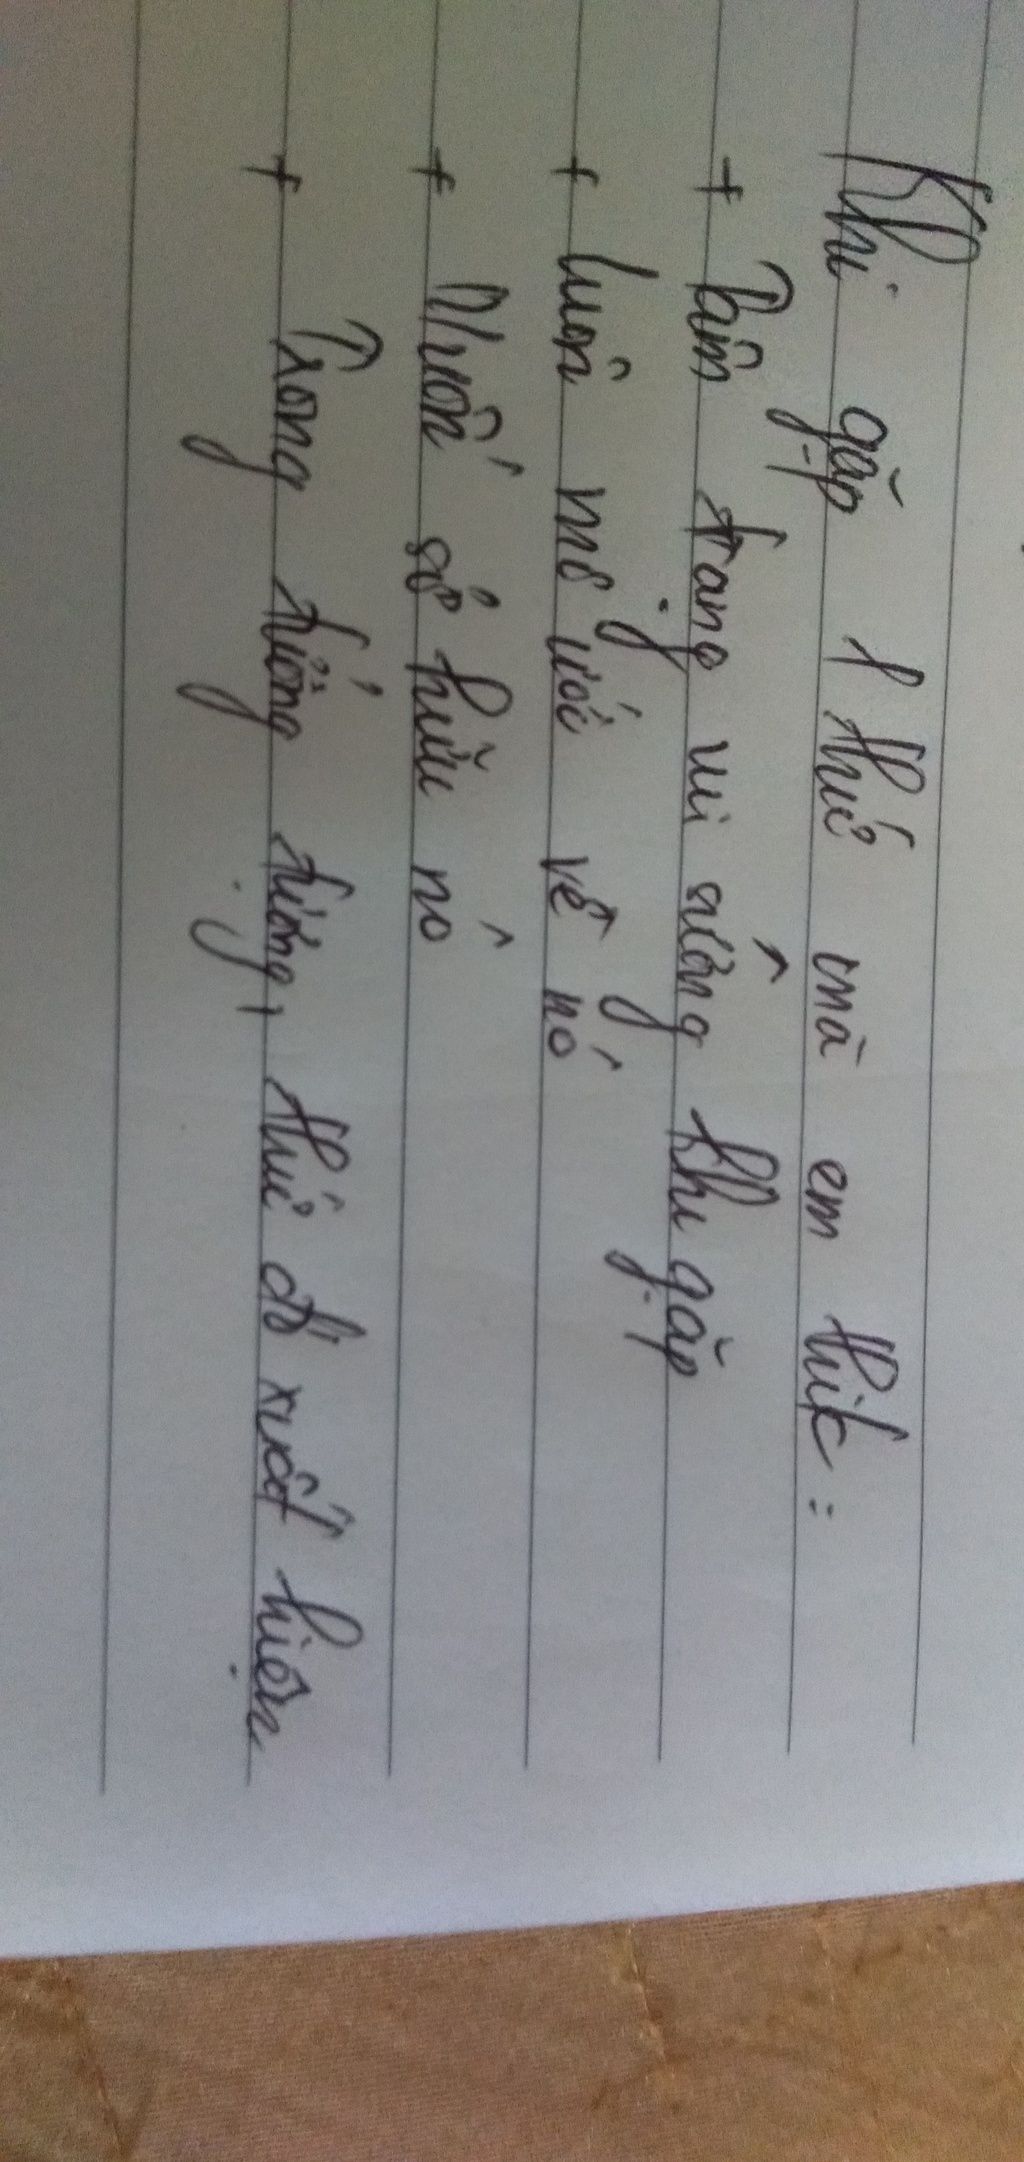 Khi gặp 1 thứ mà em thik :
+ Tâm trạng vui sướng khi gặp
+ luôn mơ ước về nó
+ Muốn sở hữu nó
+ Trong tưởng tượng, thứ đó xuất hiện